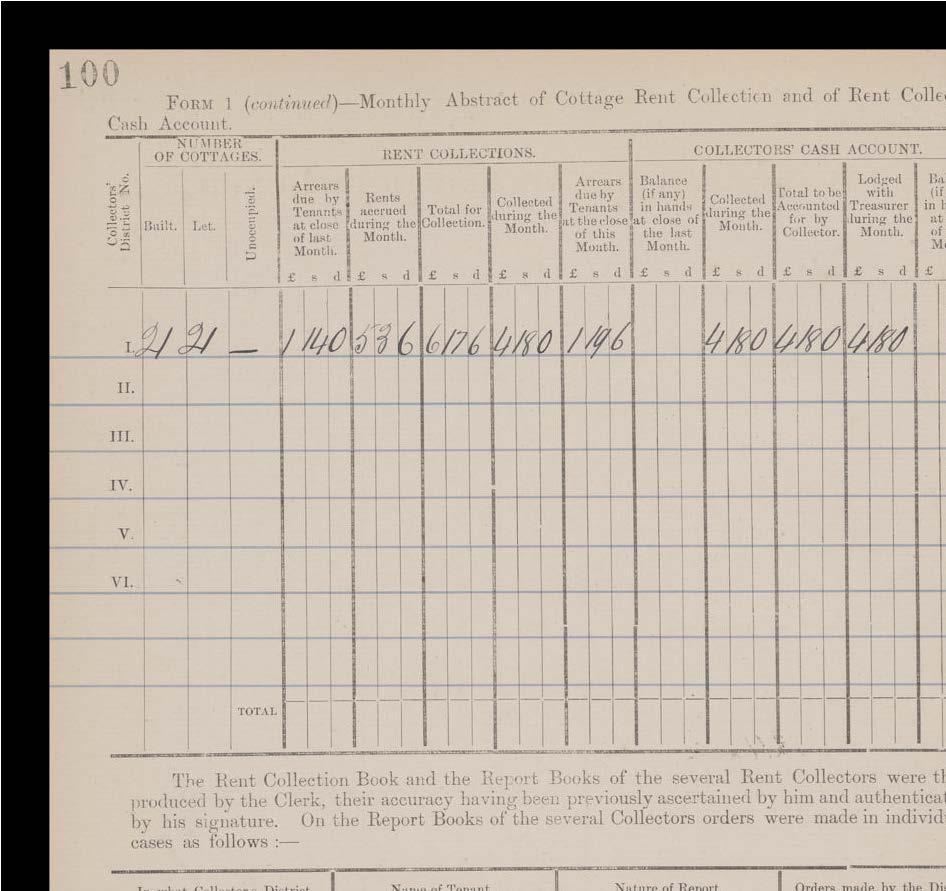 100
FORM 1 (continued)—Monthly Abstract of Cottage Rent Collection and of Rent Colle
Cash Account.
NUMBER OF COTTAGES. RENT COLLECTIONS. COLLECTORS' CASH ACCOUNT.
Collectors' District No. Built. Let. Unoccupied. Arrears due by Tenants at close of last Month. Rents accrued during the Month. Total for Collection. Collected during the Month. Arrears due by Tenants at the close of this Month. Balance (if any) in hands at close of the last Month. Collected during the Month. Total to be Accounted for by Collector. Lodged with Treasurer during the Month. Ba (if in h at of Mo
£ s d £ s d £ s d £ s d £ s d £ s d £ s d £ s d £ s d £
I. 21 21 — 1 14 0 5 3 6 6 17 6 4 18 0 1 19 6 4 18 0 4 18 0 4 18 0
II.
III.
IV.
V.
VI.
TOTAL
The Rent Collection Book and the Report Books of the several Rent Collectors were th
produced by the Clerk, their accuracy having been previously ascertained by him and authenticat
by his signature. On the Report Books of the several Collectors orders were made in individu
cases as follows :—
In what Collectors District Name of Tenant Nature of Report Orders made by the Di